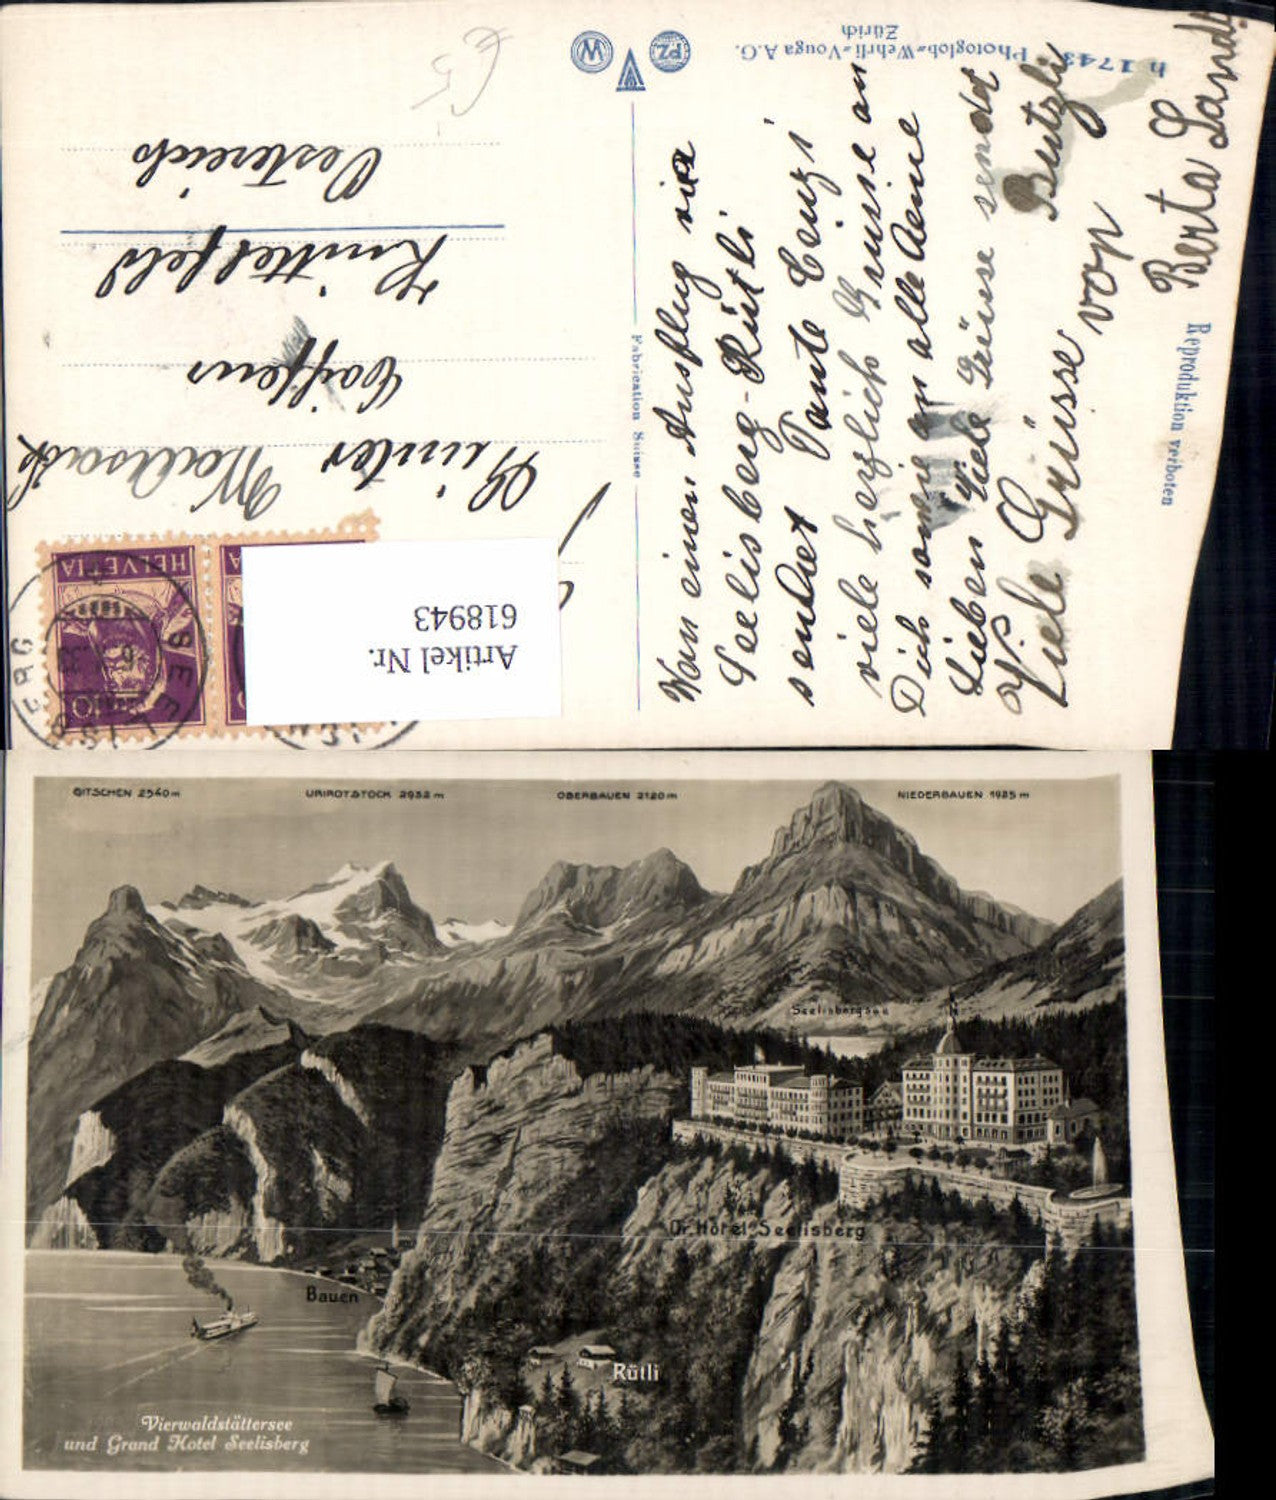 h 1743 Photoglob-Wehrli-Vouga A.G.
Zürich
PZ
W
Fabrication Suisse
Reproduktion verboten
Von einen Ausflug via
Seelisberg-Rütli
sendet Tante Cenzi
viele herzlich Grüsse an
Dich sowie an alle deine
Lieben Viele Grüsse sendet
Butzli
Viele Grüsse von
Berta Landt.
Reinler
Waisens
Knittelfeld
Oestereich
HELVETIA
10
SEELISBERG
Artikel Nr.
618943
GITSCHEN 2540 m
URIROTSTOCK 2932 m
OBERBAUEN 2120 m
NIEDERBAUEN 1925 m
Seelisbergsee
Gr. Hôtel Seelisberg
Bauen
Rütli
Vierwaldstättersee
und Grand Hotel Seelisberg